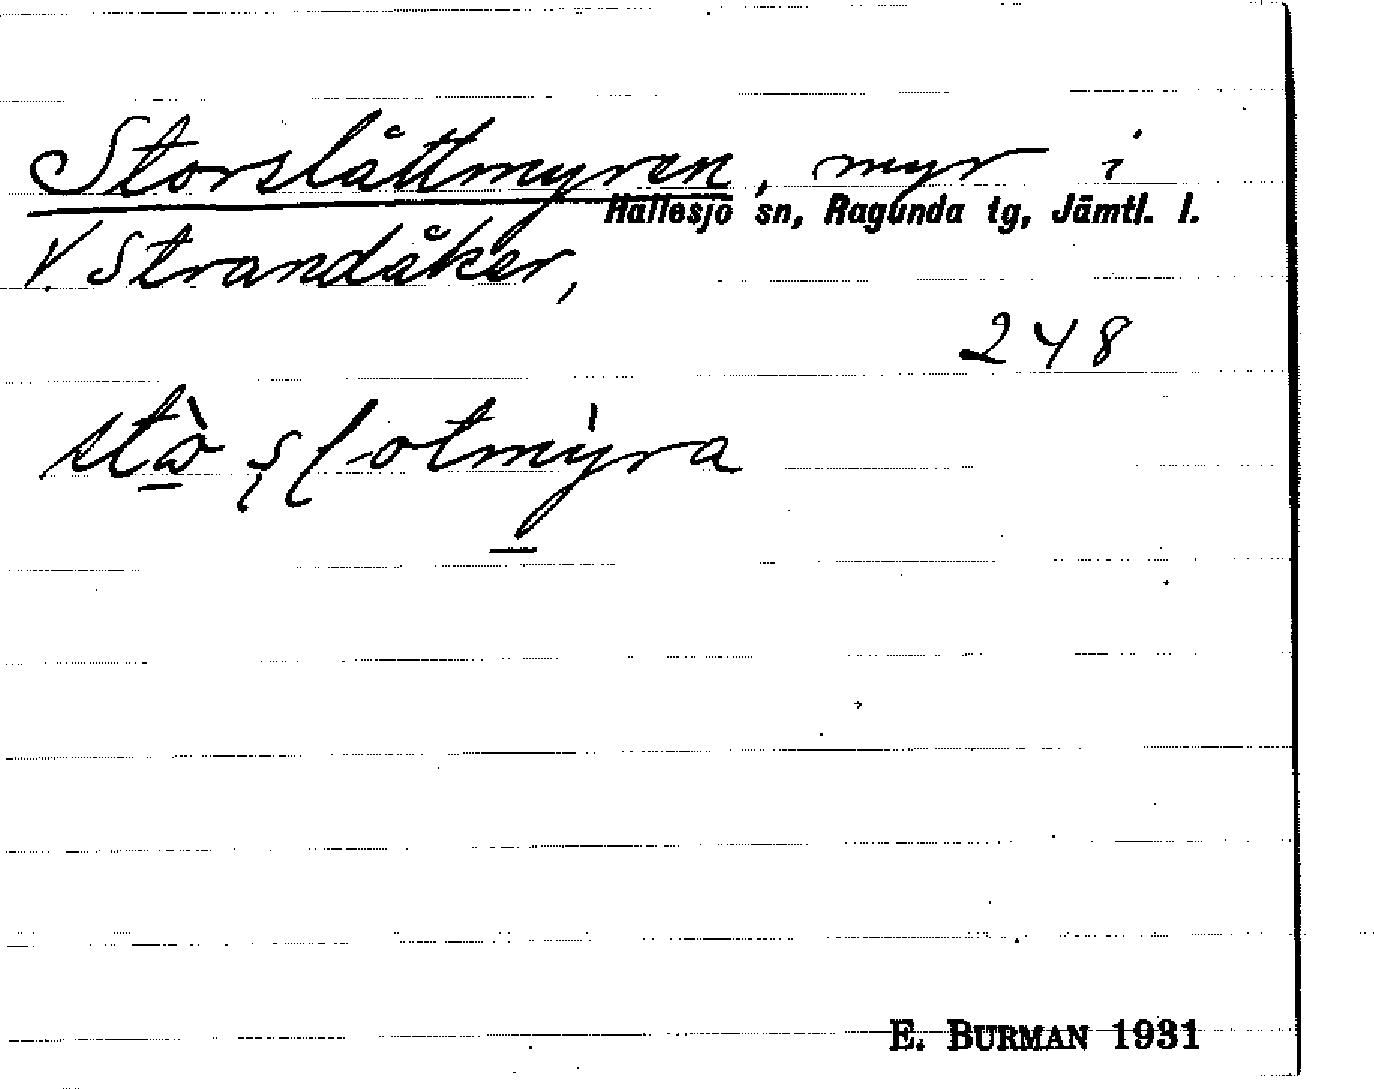 Storslåttmyren, myr i
Hällesjö sn, Ragunda tg, Jämtl. l.
V. Strandåker,
248
E. BURMAN 1931